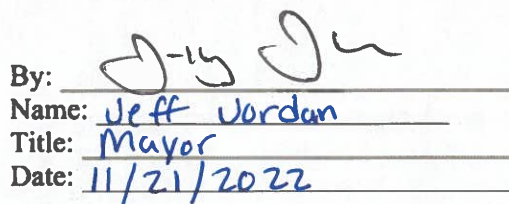 By:
Name: Jeff Jordan
Title: Mayor
Date: 11/21/2022